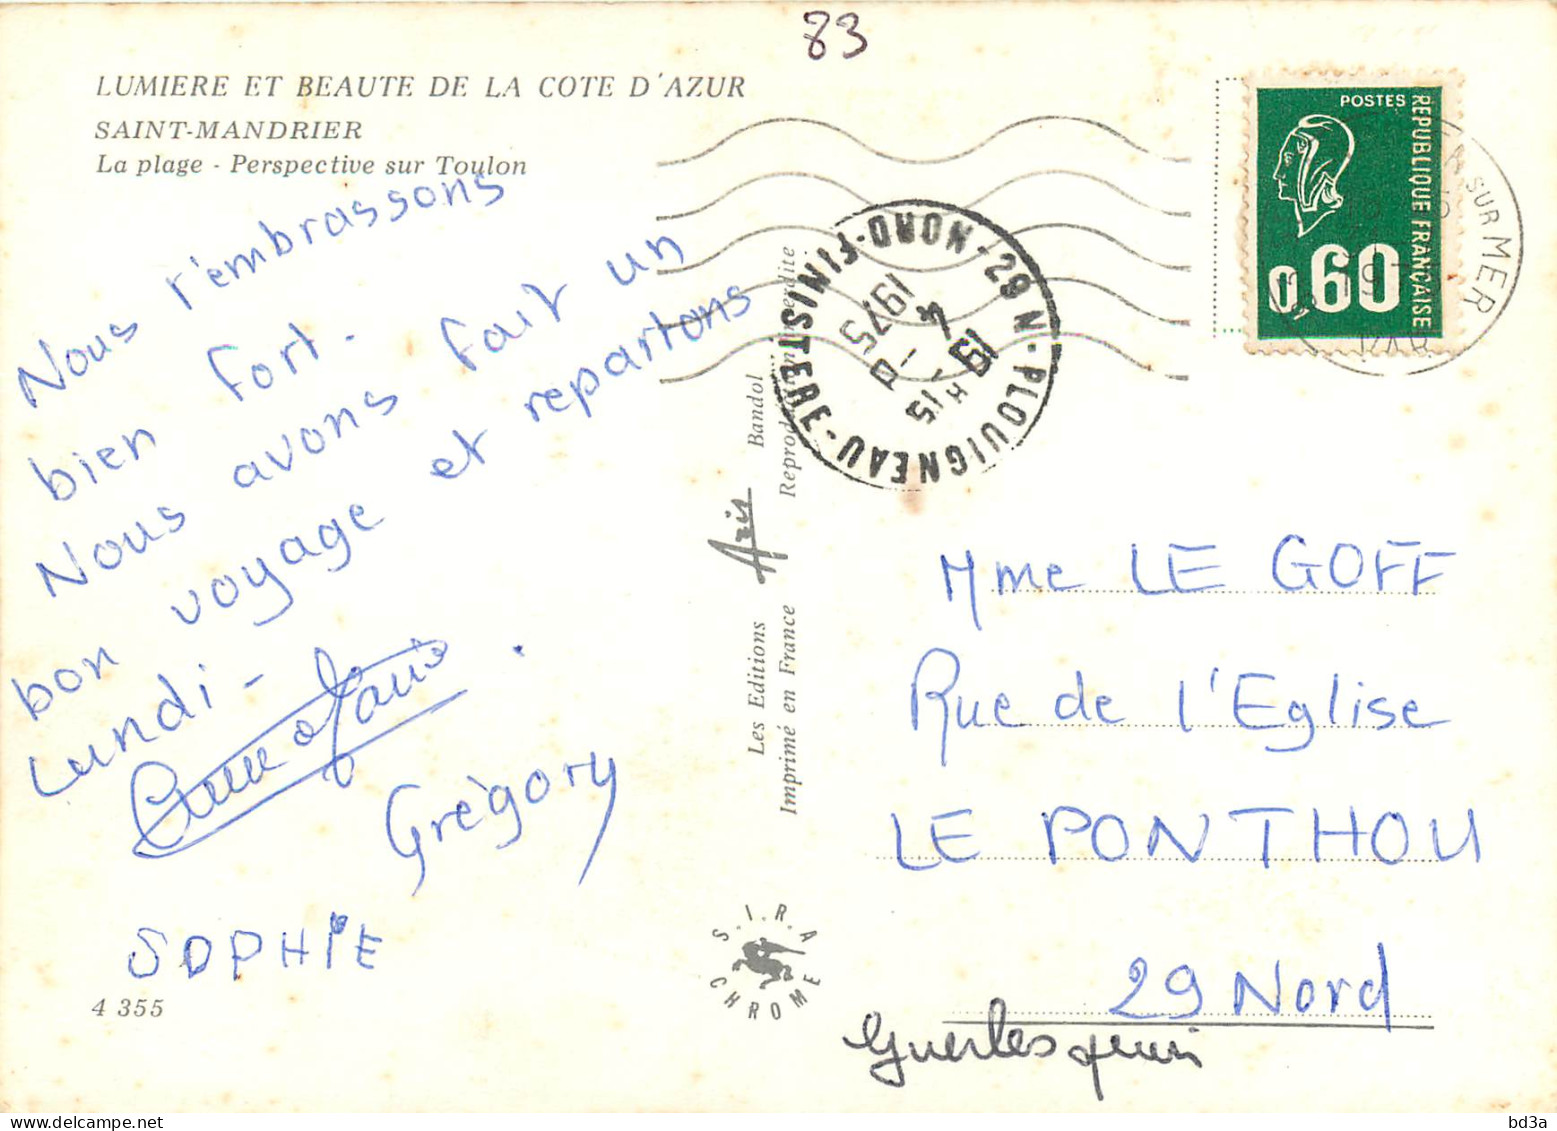 83
LUMIERE ET BEAUTE DE LA COTE D'AZUR
SAINT-MANDRIER
La plage - Perspective sur Toulon
Nous t'embrassons
bien fort.
Nous avons fait un
bon voyage et repartons
Lundi -
Grégory
SOPHIE
4 355
Les Editions Aris Bandol
Imprimé en France Reproduction interdite
S.I.R.A
CHROME
29 N - PLOUIGNEAU - NORD-FINISTERE
15 H 15
1975
POSTES
REPUBLIQUE FRANÇAISE
0,60
SUR MER
VAR
Mme LE GOFF
Rue de l'Eglise
LE PONTHOU
29 Nord
Guerlesquin
bd3a